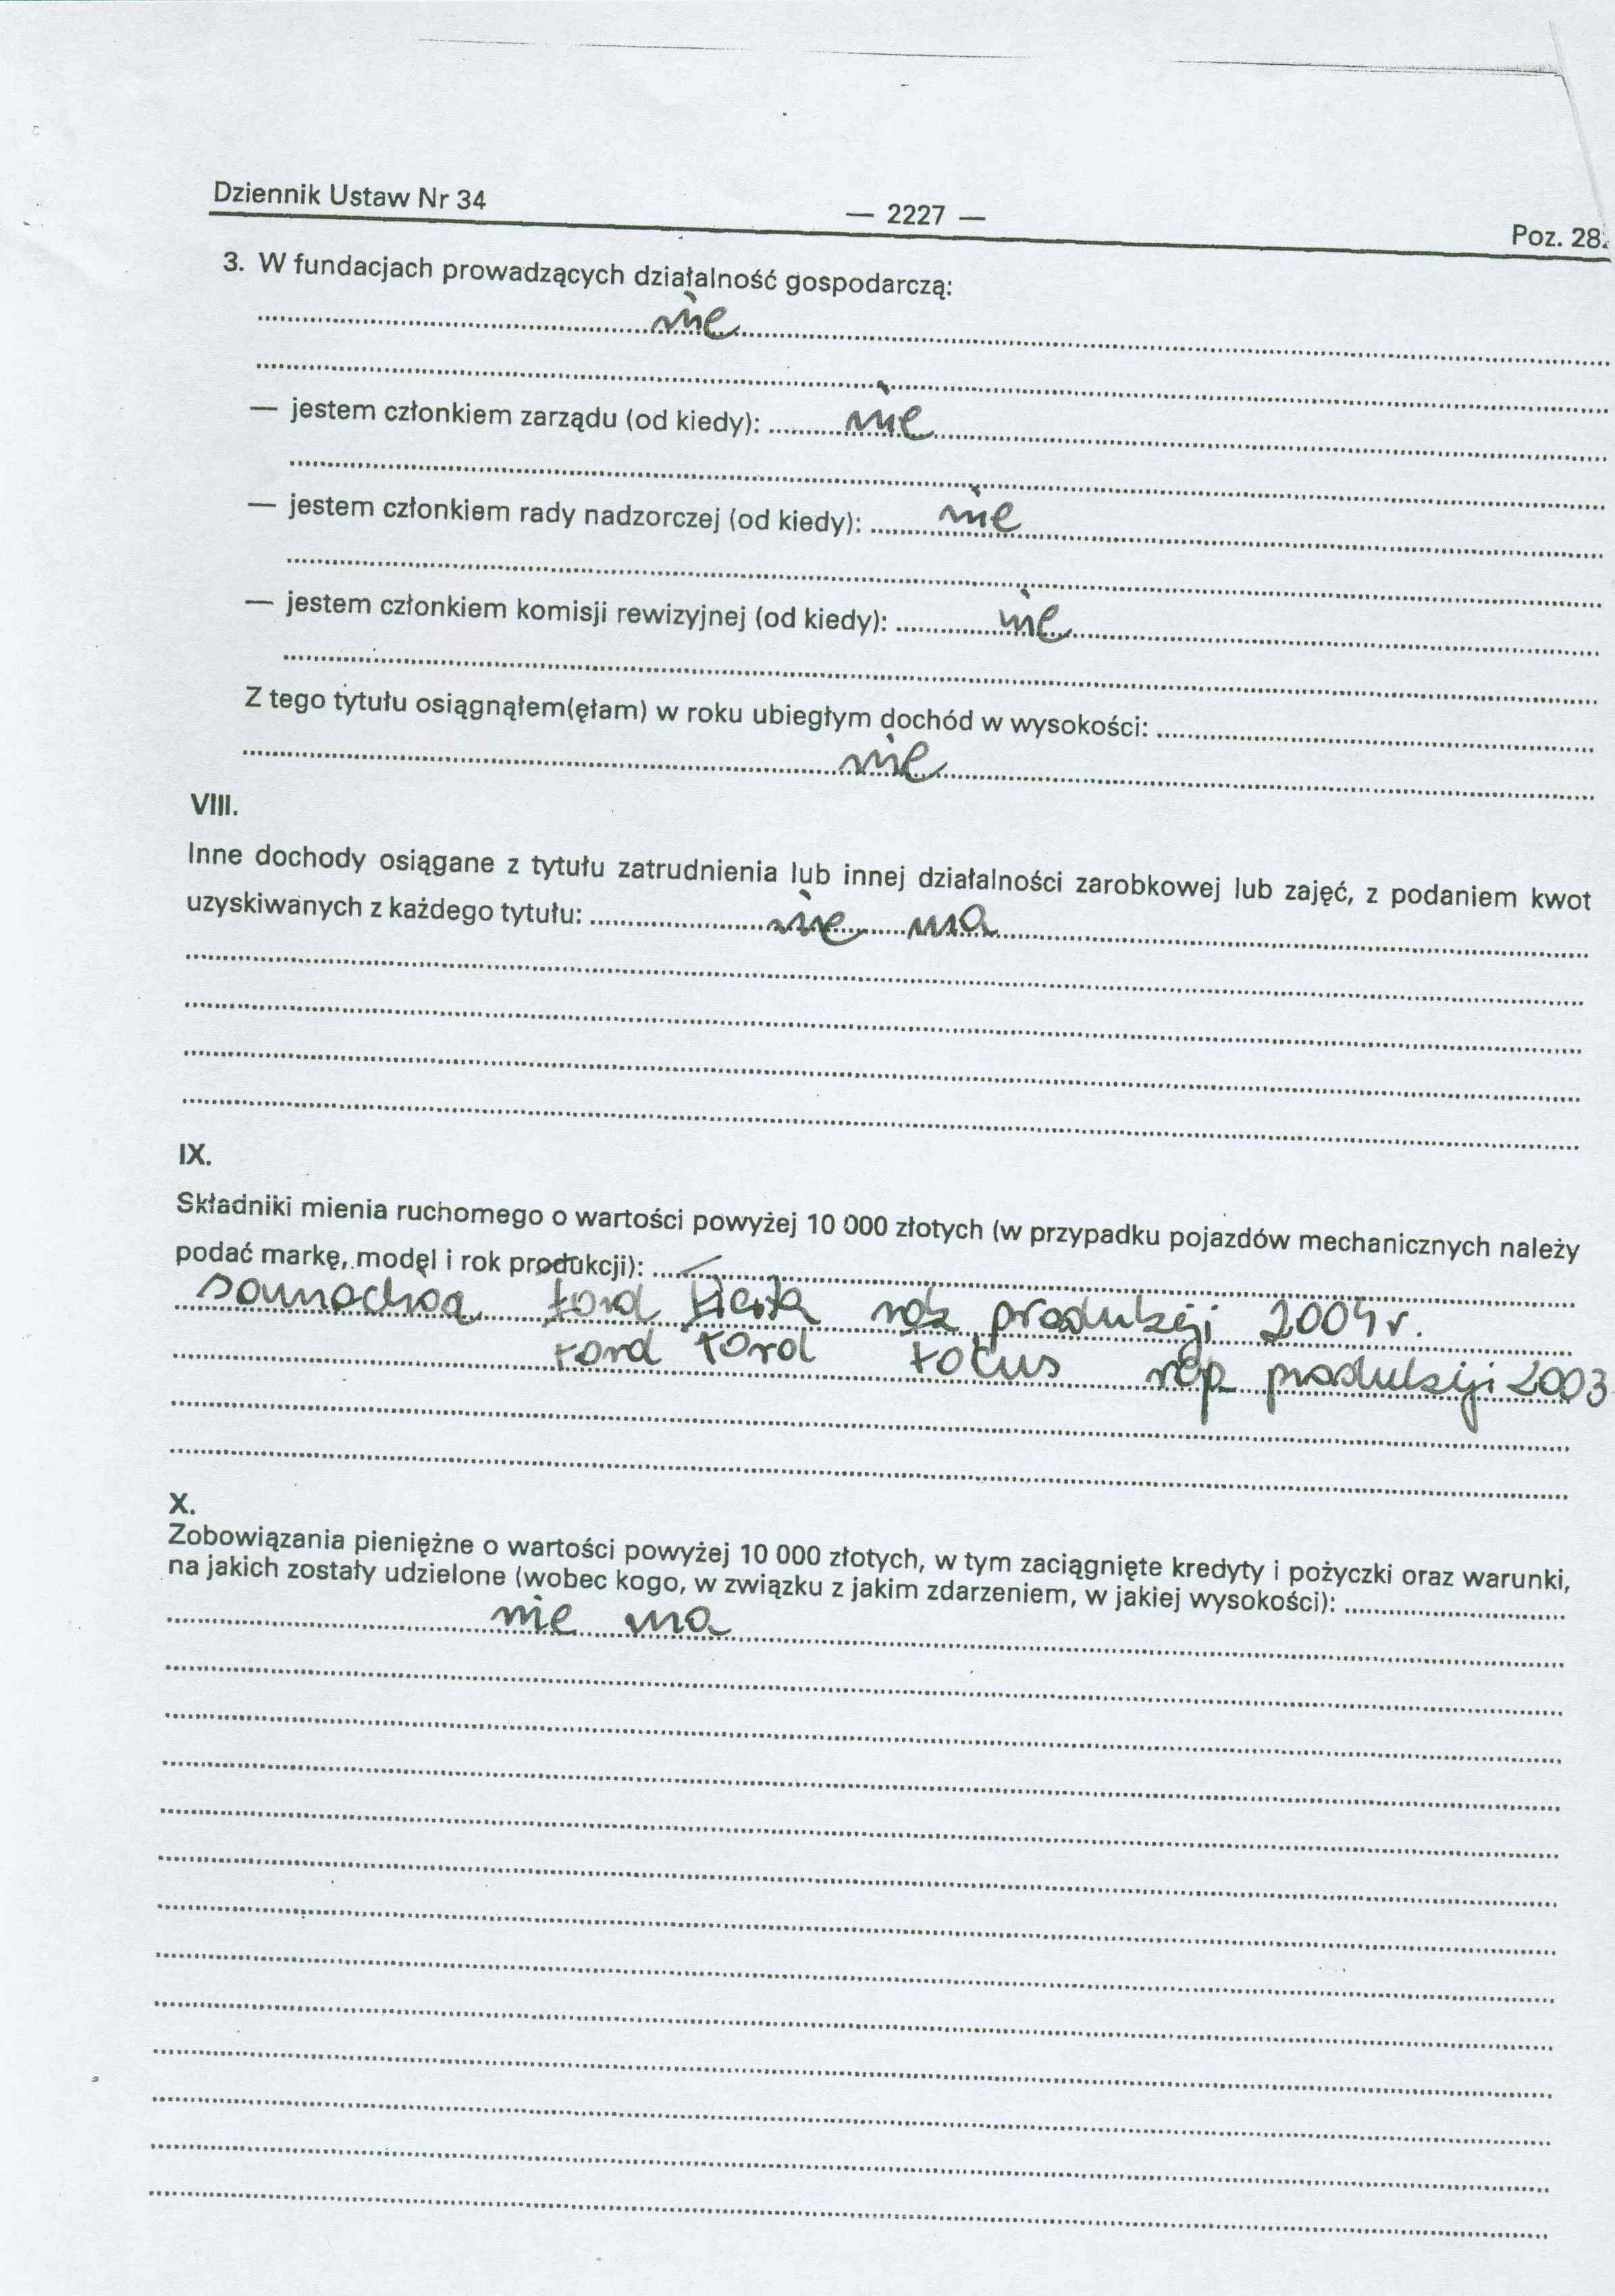 Dziennik Ustaw Nr 34
— 2227 —
Poz. 28
3. W fundacjach prowadzących działalność gospodarczą:
nie
— jestem członkiem zarządu (od kiedy): nie
— jestem członkiem rady nadzorczej (od kiedy): nie
— jestem członkiem komisji rewizyjnej (od kiedy): nie
Z tego tytułu osiągnąłem(ęłam) w roku ubiegłym dochód w wysokości:
nie
VIII.
Inne dochody osiągane z tytułu zatrudnienia lub innej działalności zarobkowej lub zajęć, z podaniem kwot
uzyskiwanych z każdego tytułu: nie ma
IX.
Składniki mienia ruchomego o wartości powyżej 10 000 złotych (w przypadku pojazdów mechanicznych należy
podać markę, model i rok produkcji):
samochod ford fiesta rok produkcji 2004 r.
ford ford focus rop produkcji 2003
X.
Zobowiązania pieniężne o wartości powyżej 10 000 złotych, w tym zaciągnięte kredyty i pożyczki oraz warunki,
na jakich zostały udzielone (wobec kogo, w związku z jakim zdarzeniem, w jakiej wysokości):
nie ma